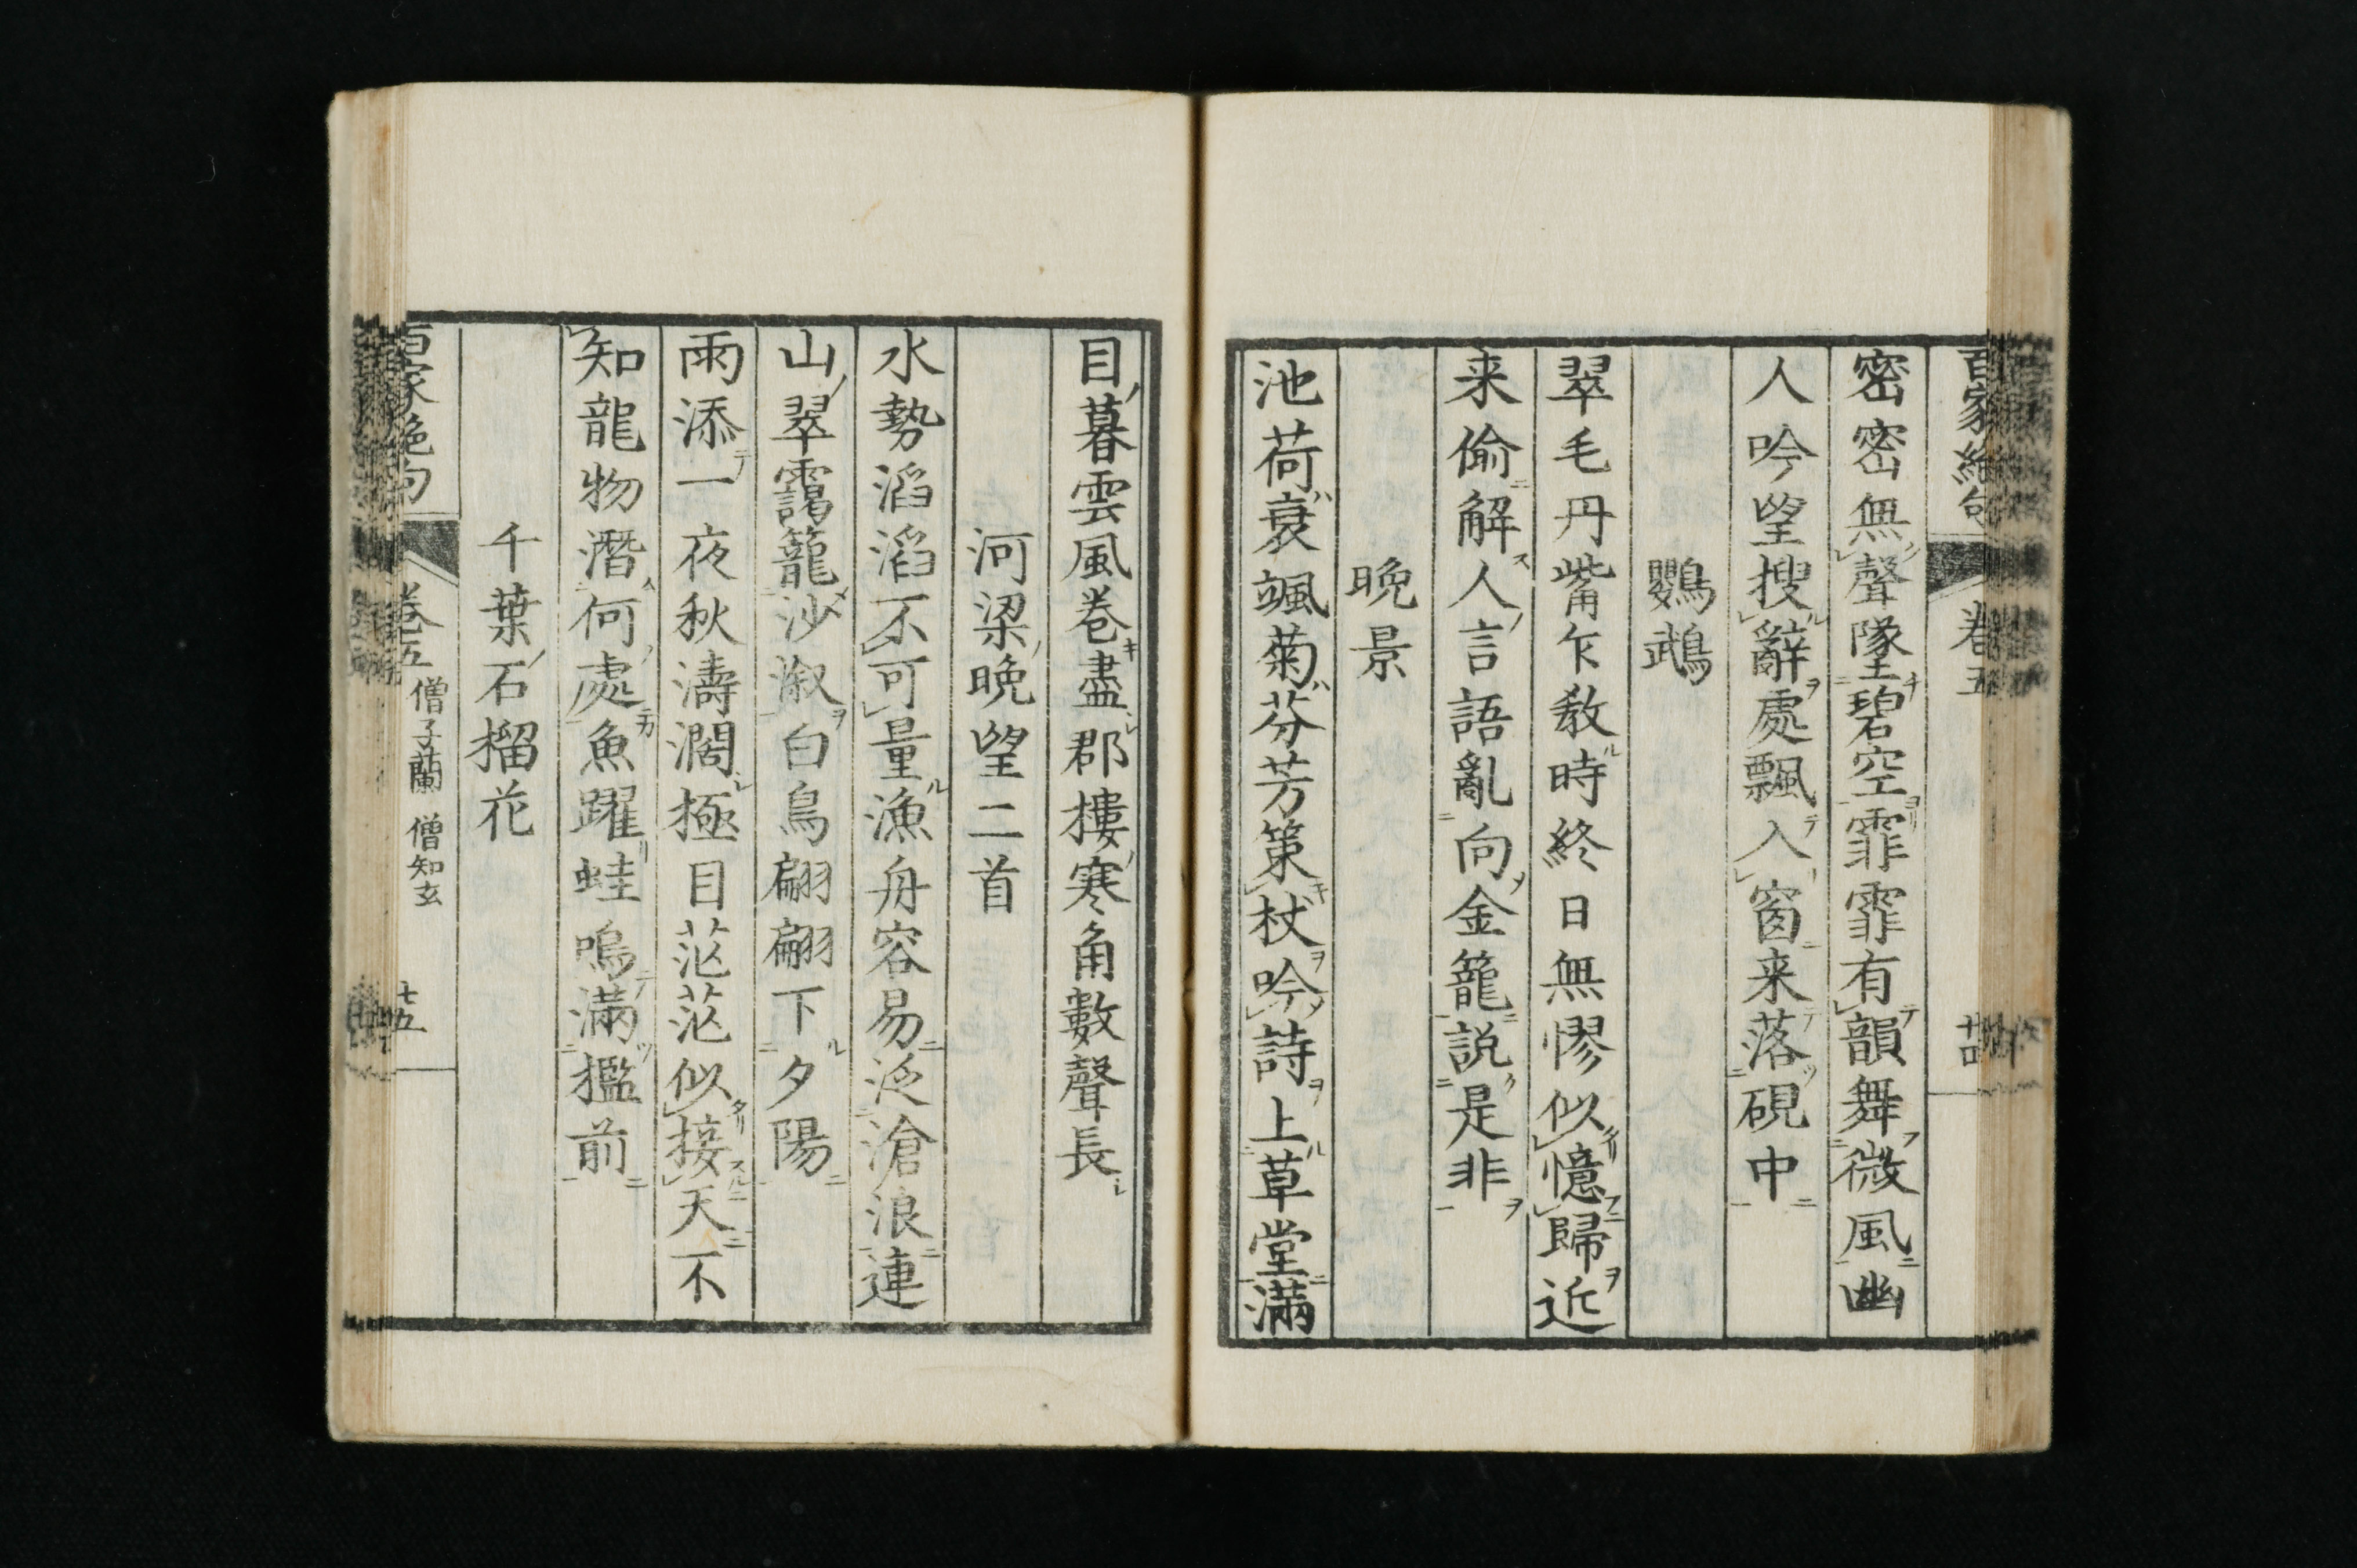 百家絶句 卷五 十四
密密無聲墜碧空霏霏有韻舞微風幽
人吟望搜辭處飄入窗来落硯中
鸚鵡
翠毛丹觜乍教時終日無憀似憶歸近
来偷解人言語亂向金籠説是非
晩景
池荷衰颯菊芬芳策杖吟詩上草堂滿
目暮雲風巻盡郡樓寒角數聲長
河梁晩望二首
水勢滔滔不可量漁舟容易泛滄浪連
山翠靄籠沙漵白鳥翩翩下夕陽
雨添一夜秋濤濶極目茫茫似接天不
知龍物潛何處魚躍蛙鳴滿檻前
千葉石榴花
百家絶句 卷五 僧子蘭 僧知玄 十五